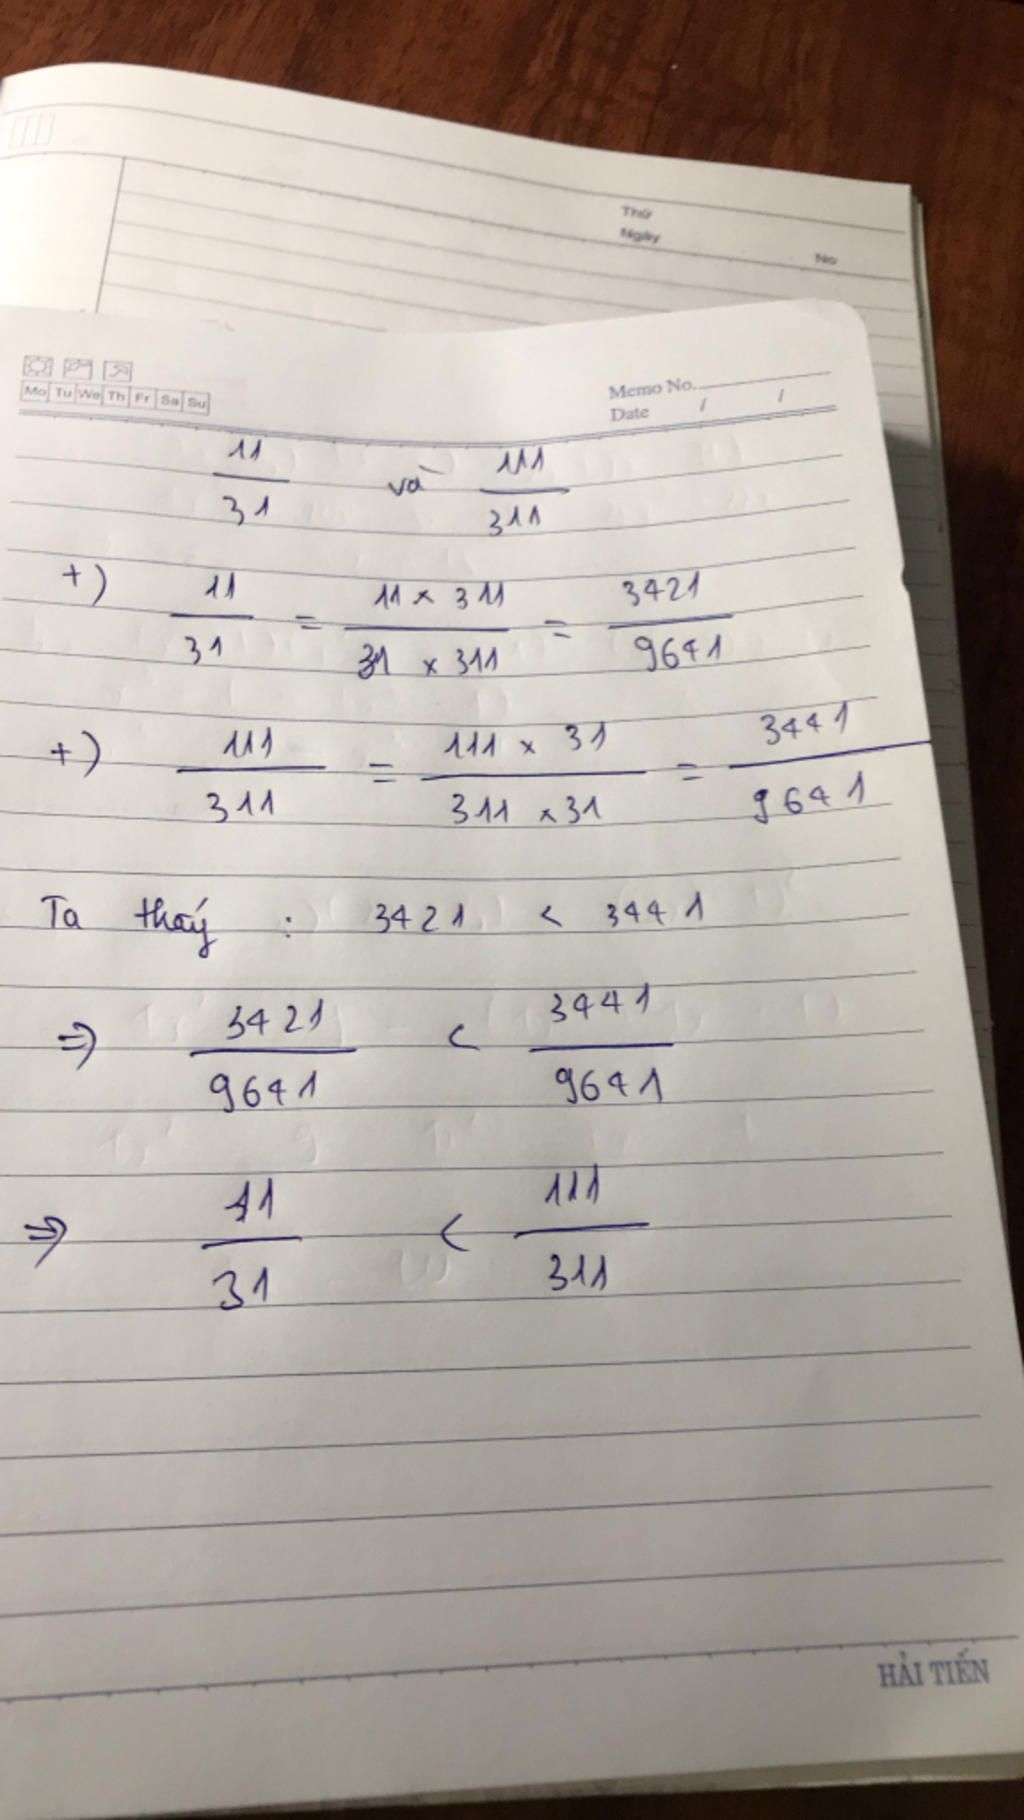 Thứ
Ngày
No
Memo No.
Mo Tu We Th Fr Sa Su
Date / /
11/31 và 111/311
+) 11/31 = 11 × 311 / 31 × 311 = 3421/9641
+) 111/311 = 111 × 31 / 311 × 31 = 3441/9641
Ta thấy : 3421 < 3441
⇒ 3421/9641 < 3441/9641
⇒ 11/31 < 111/311
HẢI TIẾN